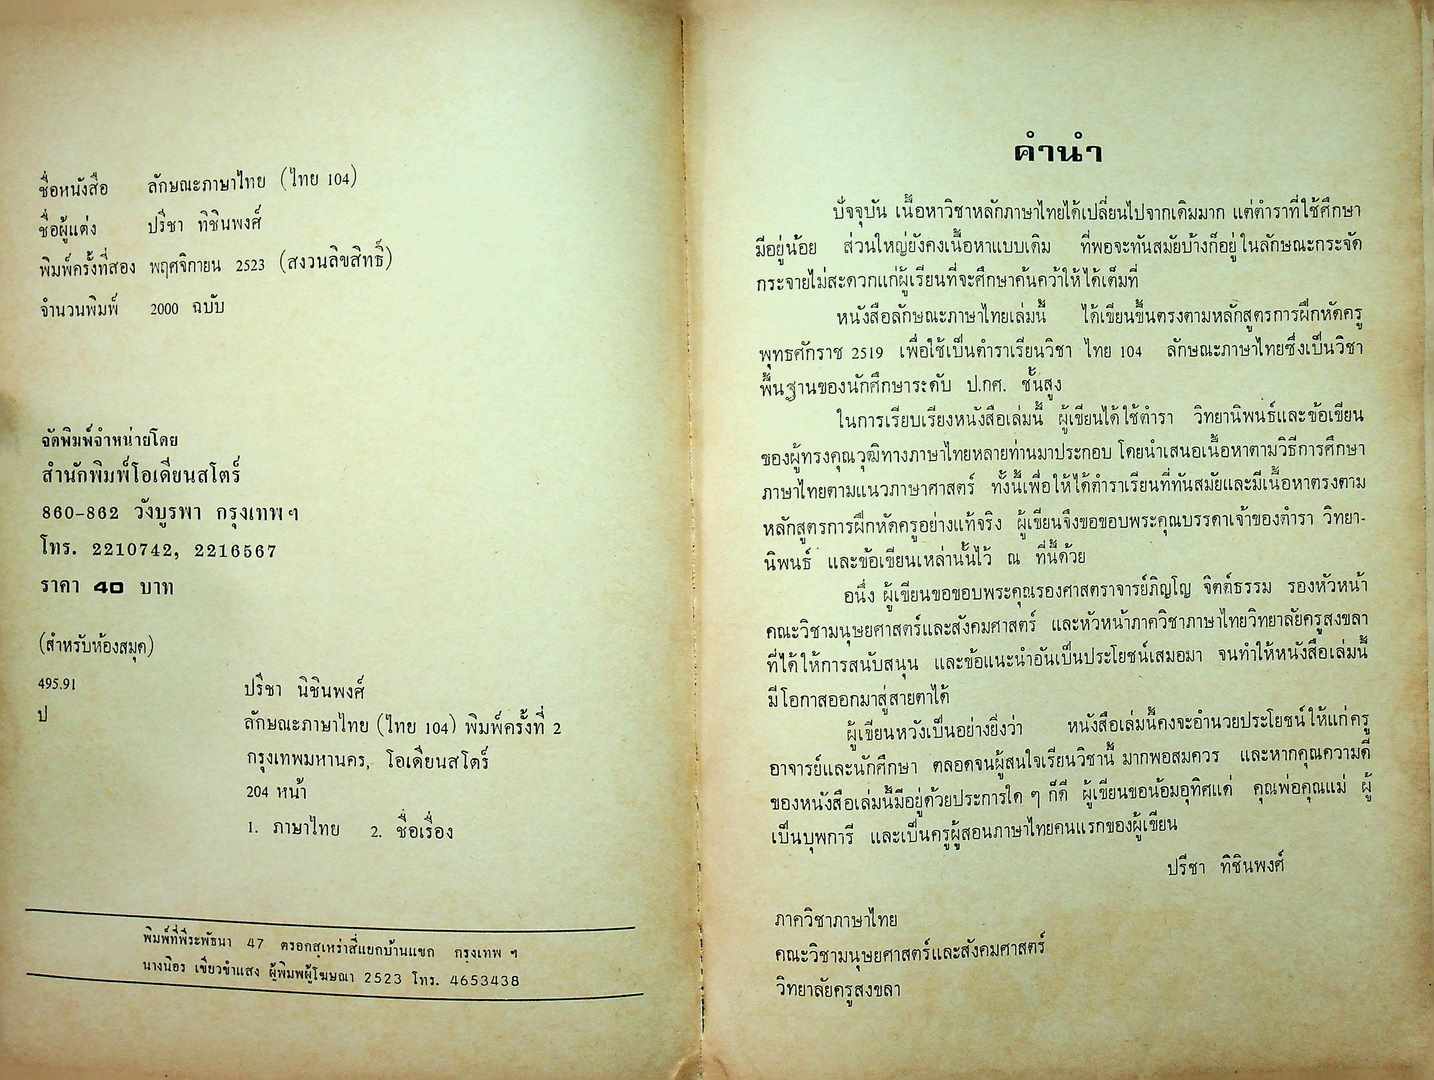 ชื่อหนังสือ ลักษณะภาษาไทย (ไทย 104)
ชื่อผู้แต่ง ปรีชา ทิชินพงศ์
พิมพ์ครั้งที่สอง พฤศจิกายน 2523 (สงวนลิขสิทธิ์)
จำนวนพิมพ์ 2000 ฉบับ
จัดพิมพ์จำหน่ายโดย
สำนักพิมพ์โอเดียนสโตร์
860-862 วังบูรพา กรุงเทพฯ
โทร. 2210742, 2216567
ราคา 40 บาท
(สำหรับห้องสมุด)
495.91 ปรีชา นิชินพงศ์
ป ลักษณะภาษาไทย (ไทย 104) พิมพ์ครั้งที่ 2
กรุงเทพมหานคร, โอเดียนสโตร์
204 หน้า
1. ภาษาไทย 2. ชื่อเรื่อง
พิมพ์ที่พีระพัธนา 47 ตรอกสุเหร่าสี่แยกบ้านแขก กรุงเทพ ฯ
นางนิอร เขียวขำแสง ผู้พิมพผู้โฆษณา 2523 โทร. 4653438
คำนำ
ปัจจุบัน เนื้อหาวิชาหลักภาษาไทยได้เปลี่ยนไปจากเดิมมาก แต่ตำราที่ใช้ศึกษา
มีอยู่น้อย ส่วนใหญ่ยังคงเนื้อหาแบบเดิม ที่พอจะทันสมัยบ้างก็อยู่ในลักษณะกระจัด
กระจายไม่สะดวกแก่ผู้เรียนที่จะศึกษาค้นคว้าให้ได้เต็มที่
หนังสือลักษณะภาษาไทยเล่มนี้ ได้เขียนขึ้นตรงตามหลักสูตรการฝึกหัดครู
พุทธศักราช 2519 เพื่อใช้เป็นตำราเรียนวิชา ไทย 104 ลักษณะภาษาไทยซึ่งเป็นวิชา
พื้นฐานของนักศึกษาระดับ ป.กศ. ชั้นสูง
ในการเรียบเรียงหนังสือเล่มนี้ ผู้เขียนได้ใช้ตำรา วิทยานิพนธ์และข้อเขียน
ของผู้ทรงคุณวุฒิทางภาษาไทยหลายท่านมาประกอบ โดยนำเสนอเนื้อหาตามวิธีการศึกษา
ภาษาไทยตามแนวภาษาศาสตร์ ทั้งนี้เพื่อให้ได้ตำราเรียนที่ทันสมัยและมีเนื้อหาตรงตาม
หลักสูตรการฝึกหัดครูอย่างแท้จริง ผู้เขียนจึงขอขอบพระคุณบรรดาเจ้าของตำรา วิทยา-
นิพนธ์ และข้อเขียนเหล่านั้นไว้ ณ ที่นี้ด้วย
อนึ่ง ผู้เขียนขอขอบพระคุณรองศาสตราจารย์ภิญโญ จิตต์ธรรม รองหัวหน้า
คณะวิชามนุษยศาสตร์และสังคมศาสตร์ และหัวหน้าภาควิชาภาษาไทยวิทยาลัยครูสงขลา
ที่ได้ให้การสนับสนุน และข้อแนะนำอันเป็นประโยชน์เสมอมา จนทำให้หนังสือเล่มนี้
มีโอกาสออกมาสู่สายตาได้
ผู้เขียนหวังเป็นอย่างยิ่งว่า หนังสือเล่มนี้คงจะอำนวยประโยชน์ให้แก่ครู
อาจารย์และนักศึกษา ตลอดจนผู้สนใจเรียนวิชานี้ มากพอสมควร และหากคุณความดี
ของหนังสือเล่มนี้มีอยู่ด้วยประการใด ๆ ก็ดี ผู้เขียนขอน้อมอุทิศแด่ คุณพ่อคุณแม่ ผู้
เป็นบุพการี และเป็นครูผู้สอนภาษาไทยคนแรกของผู้เขียน
ปรีชา ทิชินพงศ์
ภาควิชาภาษาไทย
คณะวิชามนุษยศาสตร์และสังคมศาสตร์
วิทยาลัยครูสงขลา